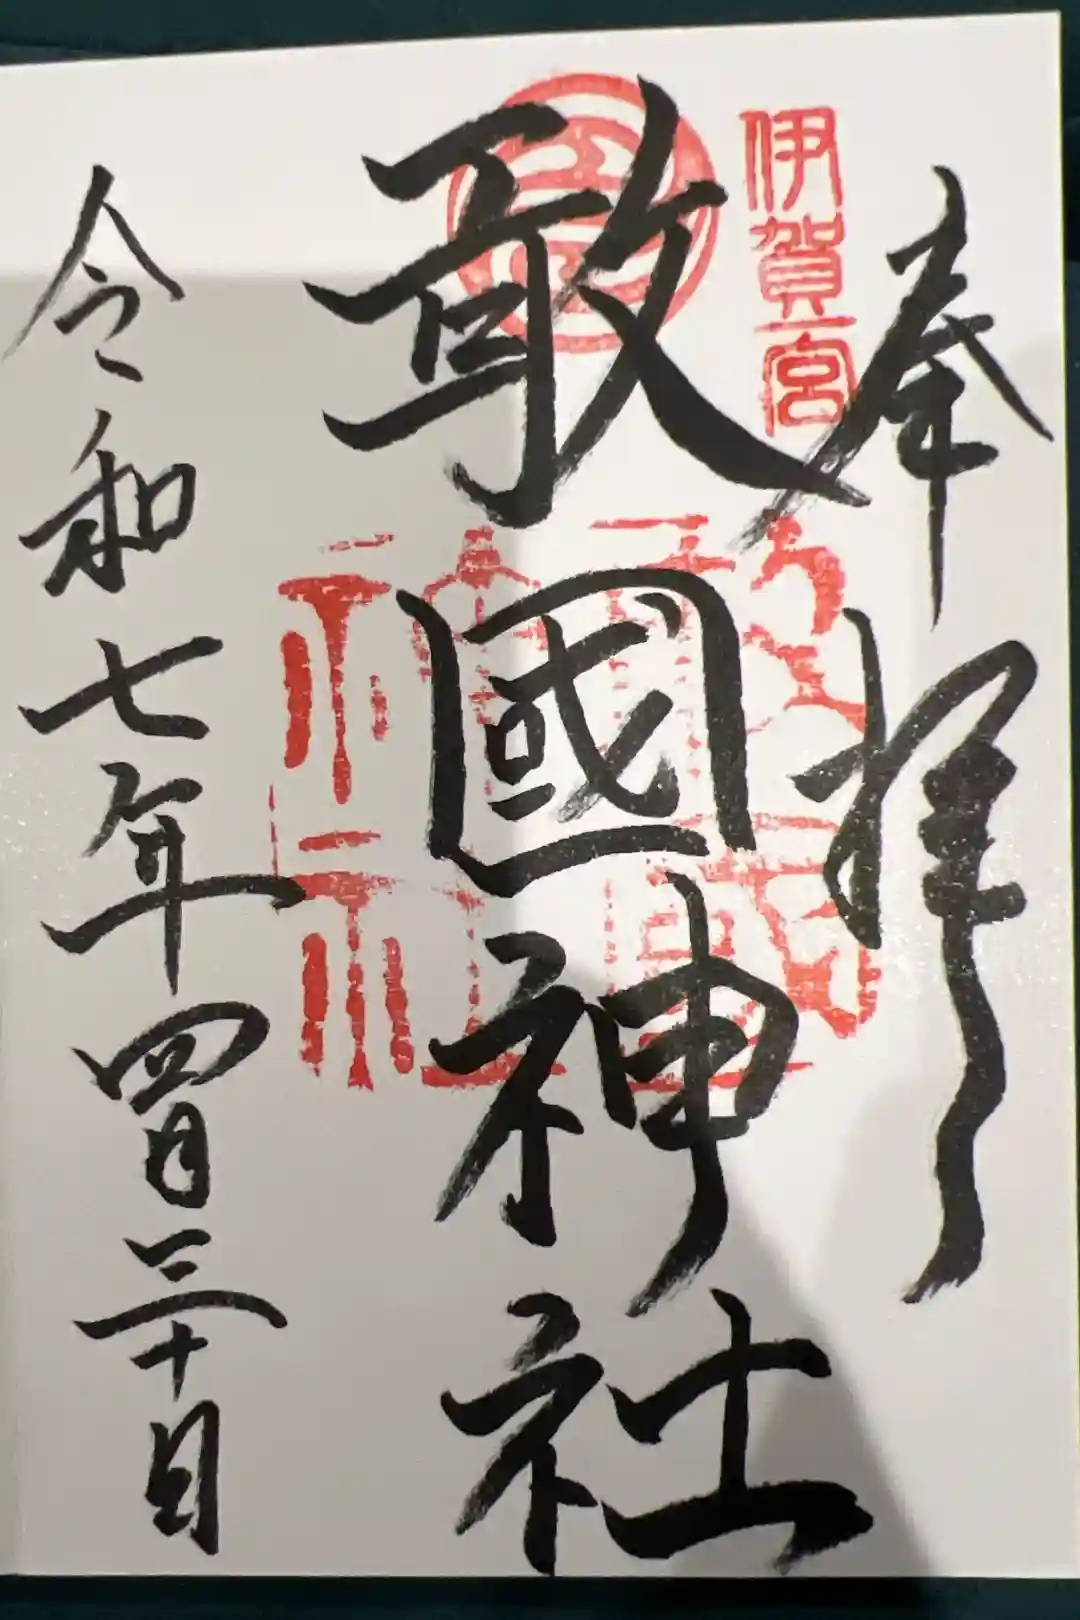 奉拝
伊賀一宮
敢國神社
令和七年四月三十日